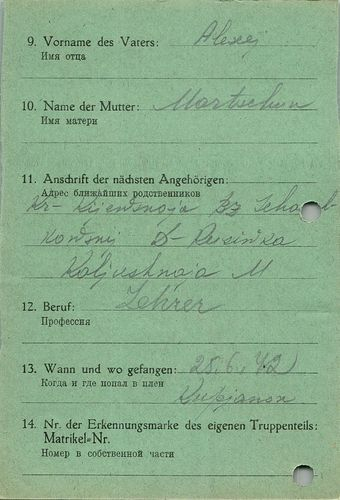 9. Vorname des Vaters: Alexej
Имя отца
10. Name der Mutter: Martschun
Имя матери
11. Anschrift der nächsten Angehörigen:
Адрес ближайших родственников
Kr- Kijewskaja Bz
kowskij D-
Kaljushnaja M
12. Beruf: Lehrer
Профессия
13. Wann und wo gefangen: 28.6.42
Когда и где попал в плен
Kupjansk
14. Nr. der Erkennungsmarke des eigenen Truppenteils:
Matrikel-Nr.
Номер в собственной части